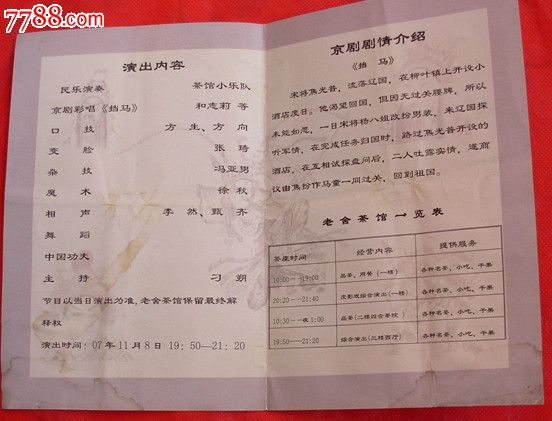 7788.com
演出内容
民乐演奏 茶馆小乐队
京剧彩唱《挡马》 和志莉 等
口技 方生、方向
变脸 张琦
杂技 冯亚男
魔术 徐秋
相声 李然、甄齐
舞蹈
中国功夫
主持 刁朔
节目以当日演出为准,老舍茶馆保留最终解
释权
演出时间:07年11月8日 19:50—21:20
京剧剧情介绍
《挡马》
宋将焦光普,流落辽国,在柳叶镇上开设小
酒店度日。他渴望回国,但因无过关腰牌,所以
未能如愿,一日宋将杨八姐改扮男装,来辽国探
听军情,在完成任务归国时,路过焦光普开设的
酒店,在互相试探盘问后,二人吐露实情,遂商
议由焦扮作马童一同过关,回到祖国。
老舍茶馆一览表
茶座时间 经营内容 提供服务
10:00--19:00 品茶、用餐(一楼) 各种名茶、小吃、干果
20:20--21:40 皮影戏综合演出(一楼) 各种名茶、小吃、干果
10:30--夜1:00 品茶(二楼四合茶院) 各种名茶、小吃、干果
19:50--21:20 综合演出(三楼西厅) 各种名茶、小吃、干果